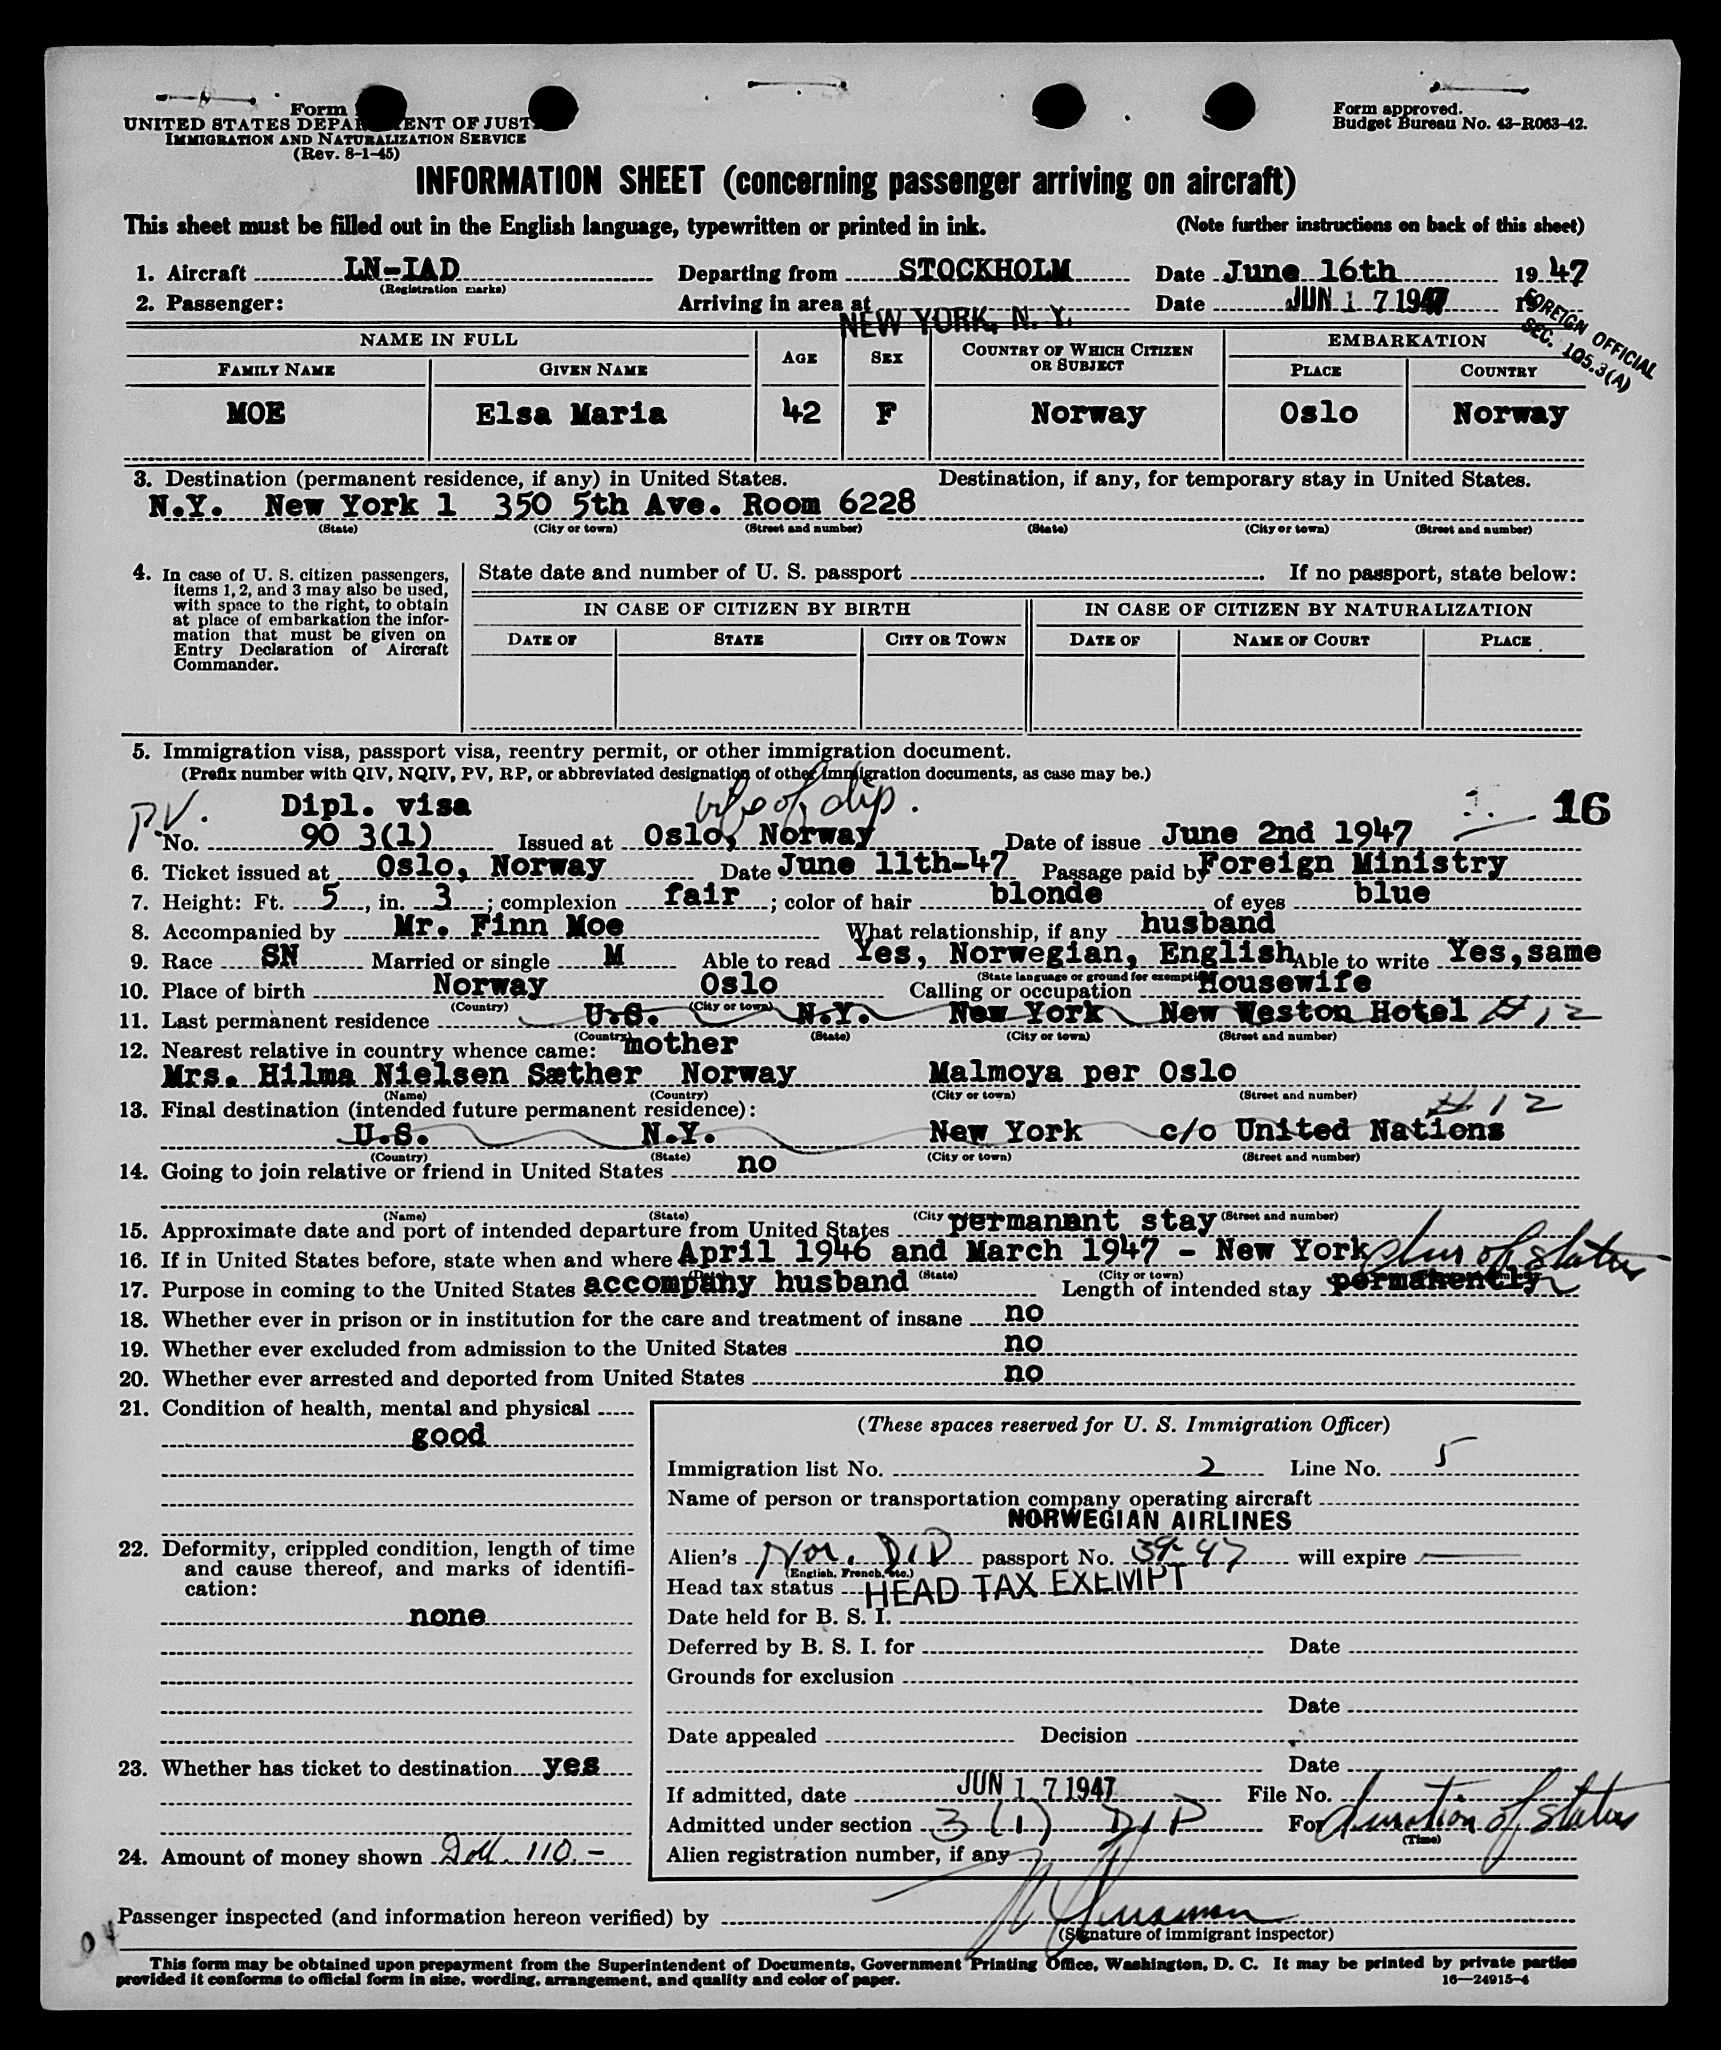 Form
UNITED STATES DEPARTMENT OF JUSTICE
IMMIGRATION AND NATURALIZATION SERVICE
(Rev. 8-1-45)
Form approved.
Budget Bureau No. 43-R063-42.
INFORMATION SHEET (concerning passenger arriving on aircraft)
This sheet must be filled out in the English language, typewritten or printed in ink. (Note further instructions on back of this sheet)
1. Aircraft LN-IAD Departing from STOCKHOLM Date June 16th 19 47
(Registration marks)
2. Passenger: Arriving in area at NEW YORK, N. Y. Date JUN 17 1947 19
FOREIGN OFFICIAL
SEC. 105.3(A)
NAME IN FULL AGE SEX COUNTRY OF WHICH CITIZEN OR SUBJECT EMBARKATION
FAMILY NAME GIVEN NAME PLACE COUNTRY
MOE Elsa Maria 42 F Norway Oslo Norway
3. Destination (permanent residence, if any) in United States. Destination, if any, for temporary stay in United States.
N.Y. New York 1 350 5th Ave. Room 6228
(State) (City or town) (Street and number) (State) (City or town) (Street and number)
4. In case of U. S. citizen passengers,
items 1, 2, and 3 may also be used,
with space to the right, to obtain
at place of embarkation the infor-
mation that must be given on
Entry Declaration of Aircraft
Commander.
State date and number of U. S. passport . If no passport, state below:
IN CASE OF CITIZEN BY BIRTH IN CASE OF CITIZEN BY NATURALIZATION
DATE OF STATE CITY OR TOWN DATE OF NAME OF COURT PLACE
5. Immigration visa, passport visa, reentry permit, or other immigration document.
(Prefix number with QIV, NQIV, PV, RP, or abbreviated designation of other immigration documents, as case may be.)
P.V. Dipl. visa wife of dip. 16
No. 90 3(1) Issued at Oslo, Norway Date of issue June 2nd 1947
6. Ticket issued at Oslo, Norway Date June 11th-47 Passage paid by Foreign Ministry
7. Height: Ft. 5, in. 3; complexion fair; color of hair blonde of eyes blue
8. Accompanied by Mr. Finn Moe What relationship, if any husband
9. Race SN Married or single M Able to read Yes, Norwegian, English Able to write Yes,same
(State language or ground for exemption)
10. Place of birth Norway Oslo Calling or occupation Housewife
(Country) (City or town)
11. Last permanent residence U.S. N.Y. New York New Weston Hotel # 12
(Country) (State) (City or town) (Street and number)
12. Nearest relative in country whence came: mother
Mrs. Hilma Nielsen Sæther Norway Malmoya per Oslo
(Name) (Country) (City or town) (Street and number)
13. Final destination (intended future permanent residence): # 12
U.S. N.Y. New York c/o United Nations
(Country) (State) (City or town) (Street and number)
14. Going to join relative or friend in United States no
(Name) (State) (City (Street and number)
15. Approximate date and port of intended departure from United States permanent stay
16. If in United States before, state when and where April 1946 and March 1947 - New York
(State) (City or town)
dur of status
17. Purpose in coming to the United States accompany husband Length of intended stay permanently
18. Whether ever in prison or in institution for the care and treatment of insane no
19. Whether ever excluded from admission to the United States no
20. Whether ever arrested and deported from United States no
21. Condition of health, mental and physical
good
22. Deformity, crippled condition, length of time
and cause thereof, and marks of identifi-
cation:
none
23. Whether has ticket to destination yes
24. Amount of money shown Doll. 110.-
(These spaces reserved for U. S. Immigration Officer)
Immigration list No. 2 Line No. 5
Name of person or transportation company operating aircraft
NORWEGIAN AIRLINES
Alien's Nor. DIP passport No. 39-47 will expire —
(English, French, etc.)
Head tax status HEAD TAX EXEMPT
Date held for B. S. I.
Deferred by B. S. I. for Date
Grounds for exclusion
Date
Date appealed Decision
Date
If admitted, date JUN 17 1947 File No.
Admitted under section 3 (1) DIP For duration of status
(Time)
Alien registration number, if any
Passenger inspected (and information hereon verified) by
(Signature of immigrant inspector)
This form may be obtained upon prepayment from the Superintendent of Documents, Government Printing Office, Washington, D. C. It may be printed by private parties
provided it conforms to official form in size, wording, arrangement, and quality and color of paper. 16—24915-4